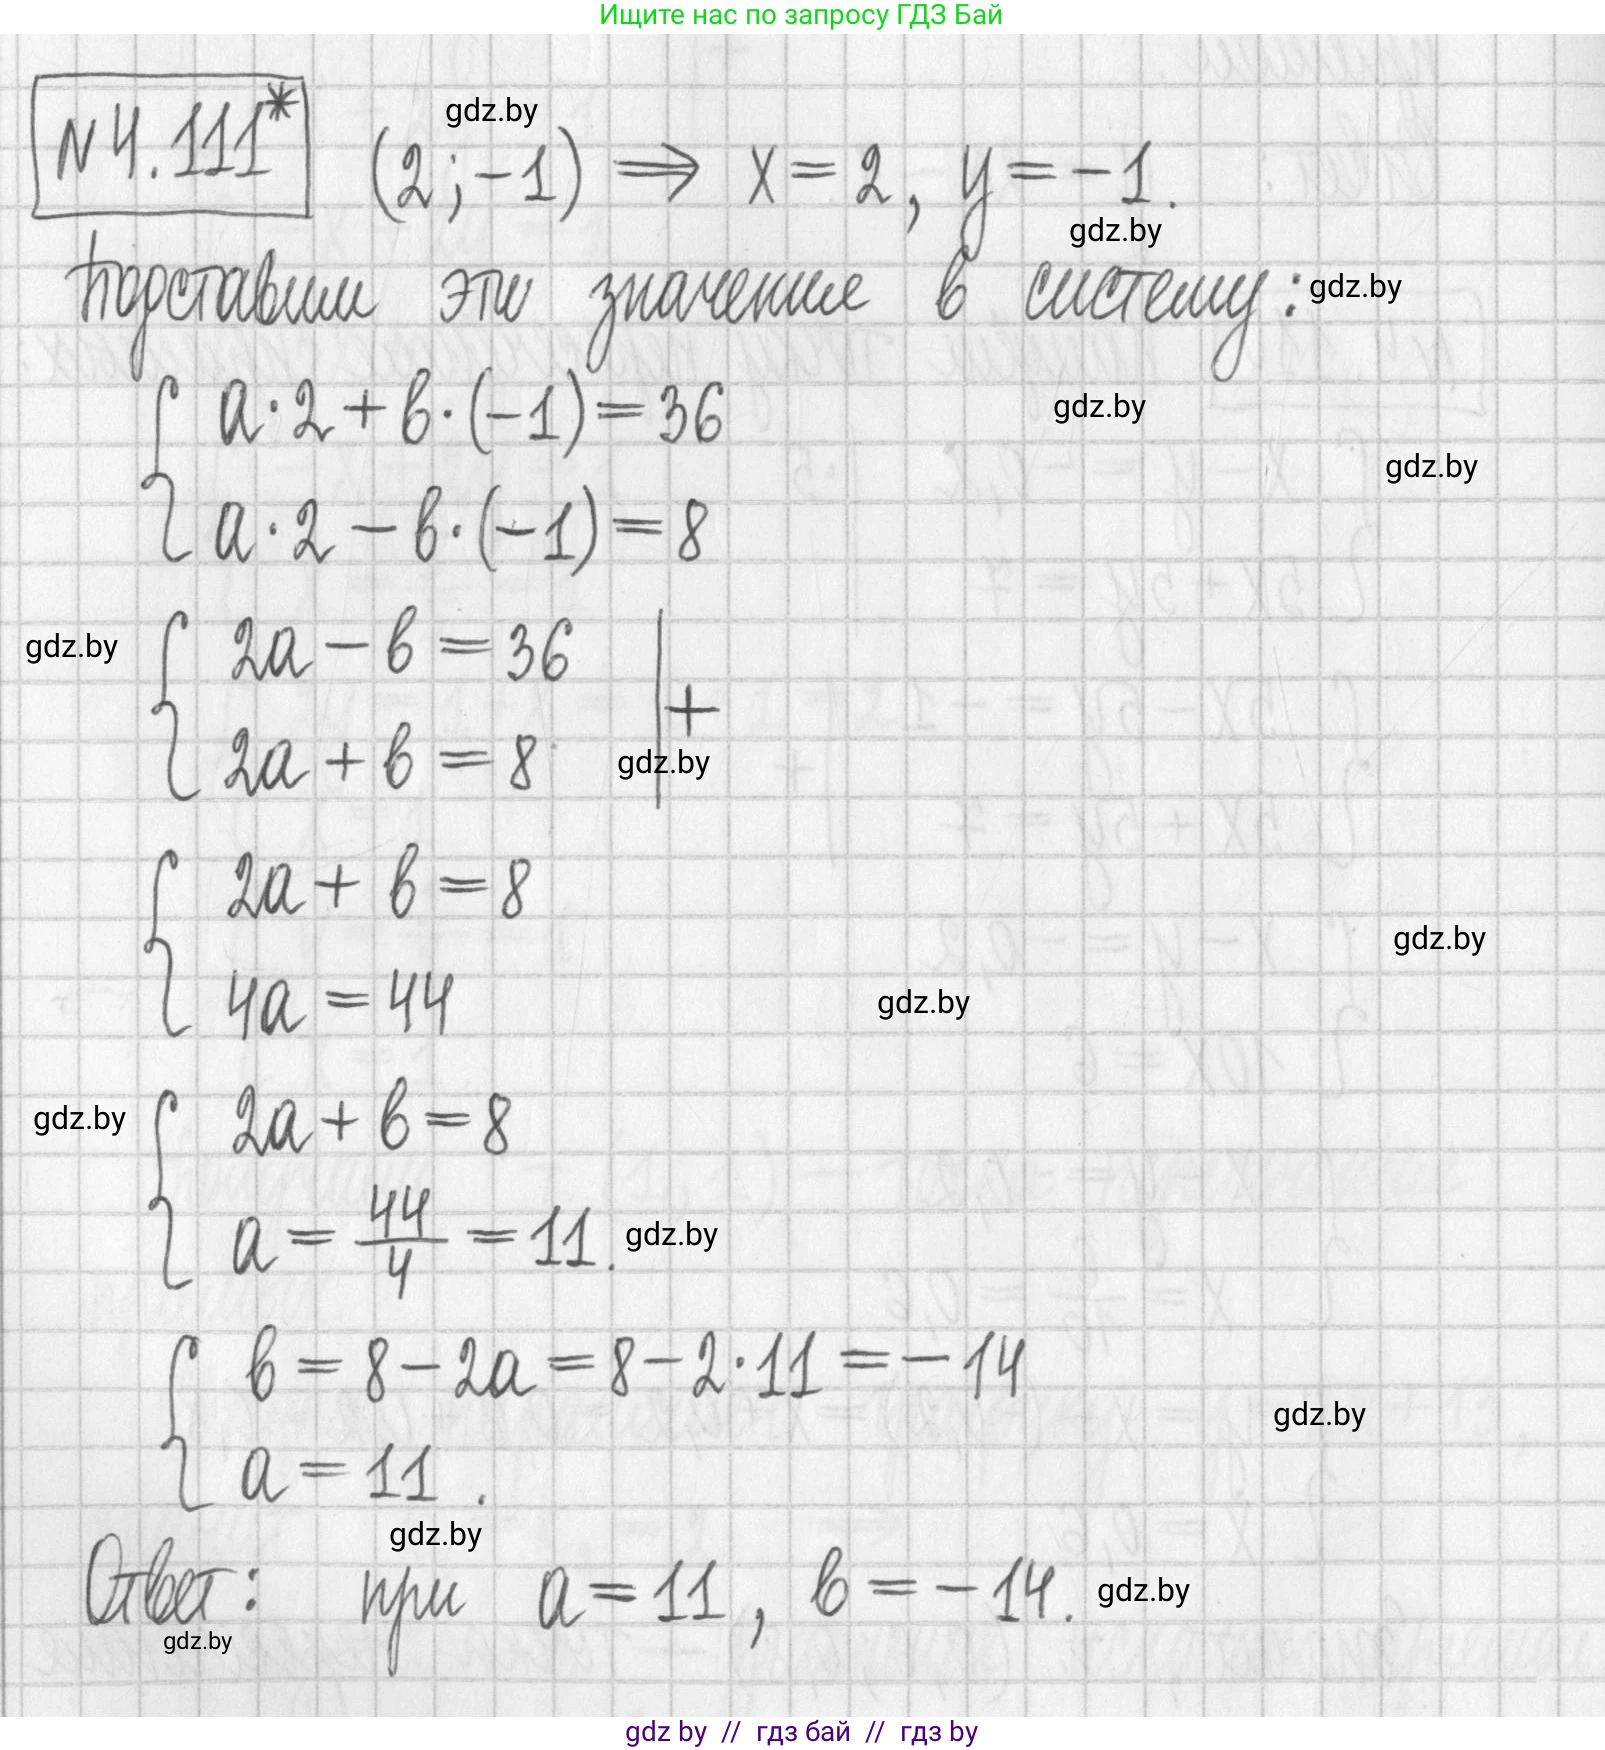 Ищите нас по запросу ГДЗ Бай
gdz.by
N4.111* (2;-1) ⇒ x=2, y=-1.
gdz.by
Подставим эти значение в систему: gdz.by
a·2+b·(-1)=36
gdz.by
gdz.by
a·2-b·(-1)=8
gdz.by
2a-b=36
+
2a+b=8
gdz.by
2a+b=8
gdz.by
4a=44
gdz.by
gdz.by
2a+b=8
a=44/4=11. gdz.by
b=8-2a=8-2·11=-14
gdz.by
a=11.
gdz.by
Ответ: при a=11, b=-14. gdz.by
gdz.by
gdz by // гдз бай // гдз by